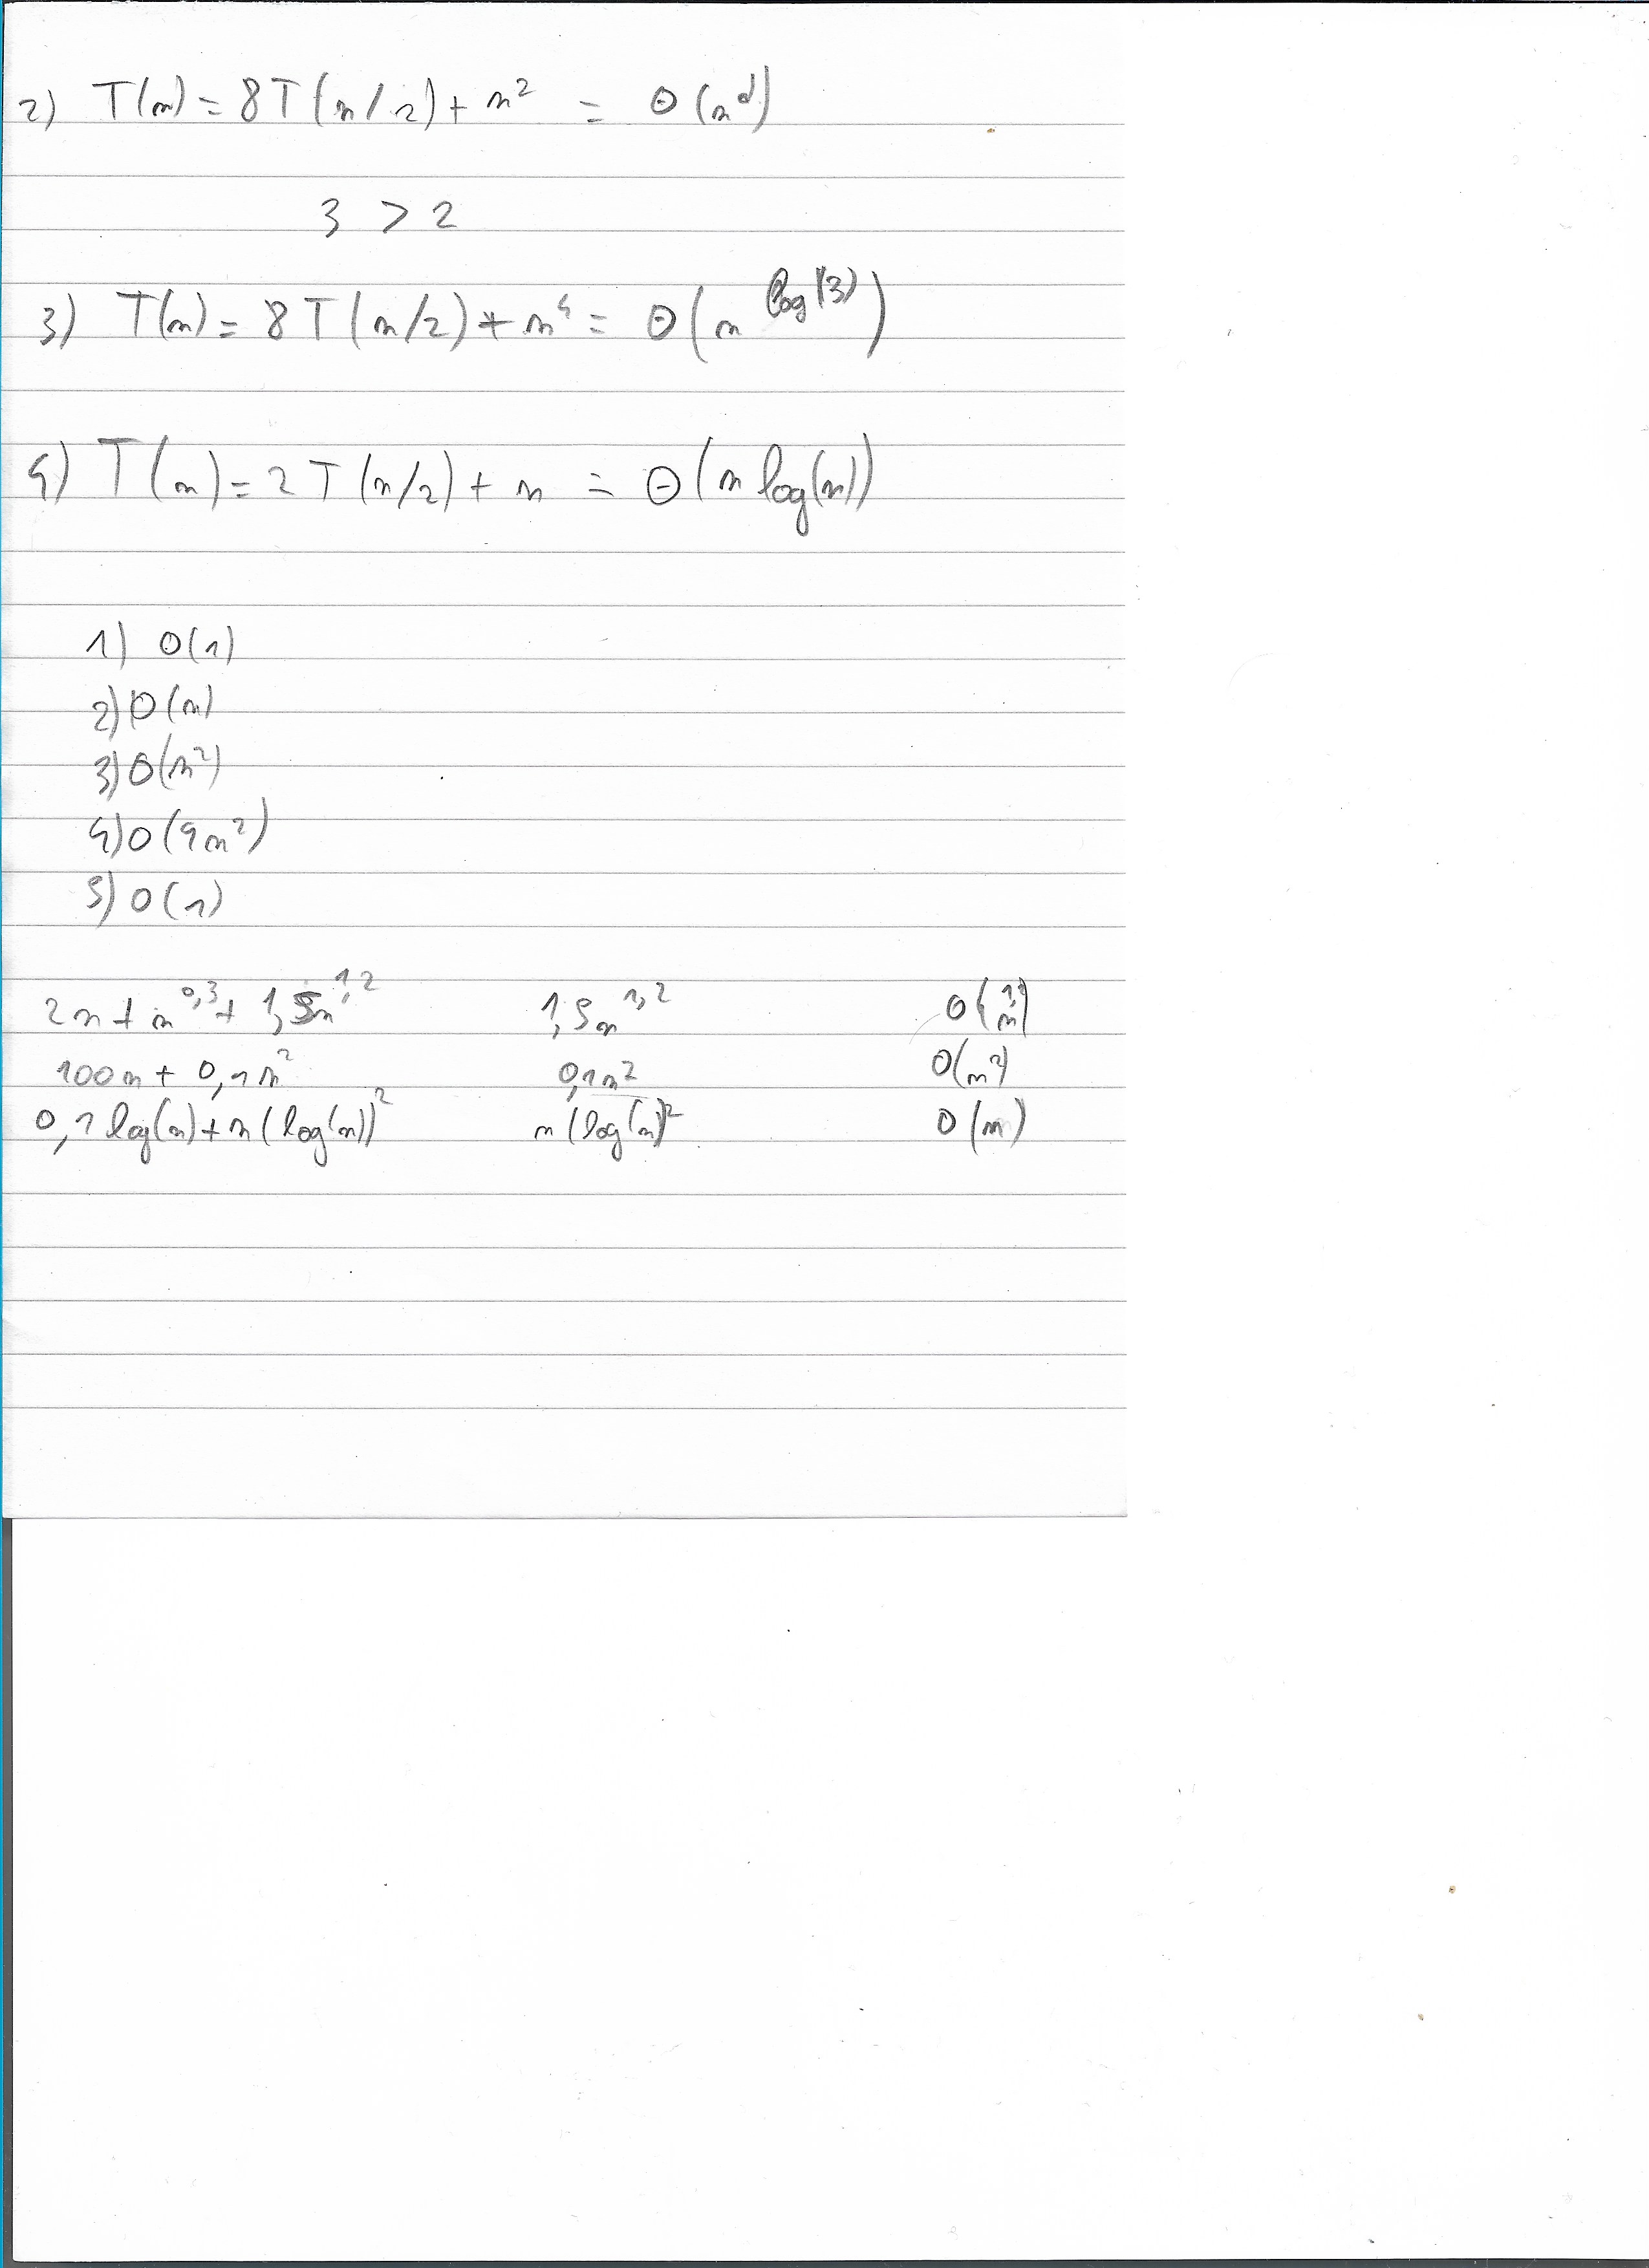 2) T(n) = 8T(n/2) + n² = Θ(n^d)
3 > 2
3) T(n) = 8T(n/2) + n⁴ = Θ(n^log(3))
4) T(n) = 2T(n/2) + n = Θ(n log(n))
1) O(1)
2) O(n)
3) O(n²)
4) O(4n²)
5) O(1)
2n + n^0,3 + 1,5n^1,2 1,5n^1,2 O(n^1,2)
100n + 0,1n² 0,1n² O(n²)
0,1 log(n) + n(log(n))² n(log(n))² O(n)